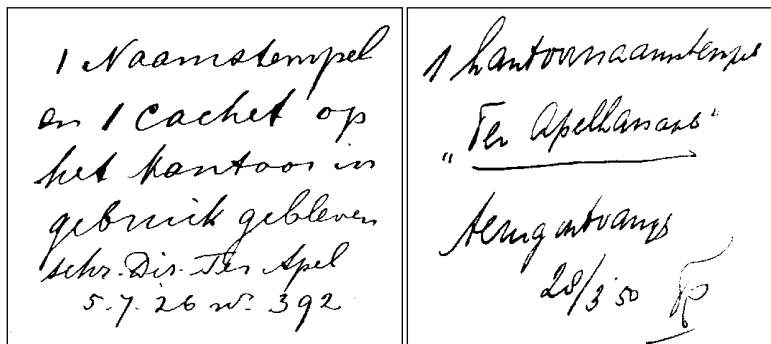 1 Naamstempel
en 1 cachet op
het kantoor in
gebruik gebleven
schr. Dir. Ter Apel
5.7.26 no. 392
1 kantoornaamstempel
"Ter Apelkanaal"
terugontvangst
28/3 50